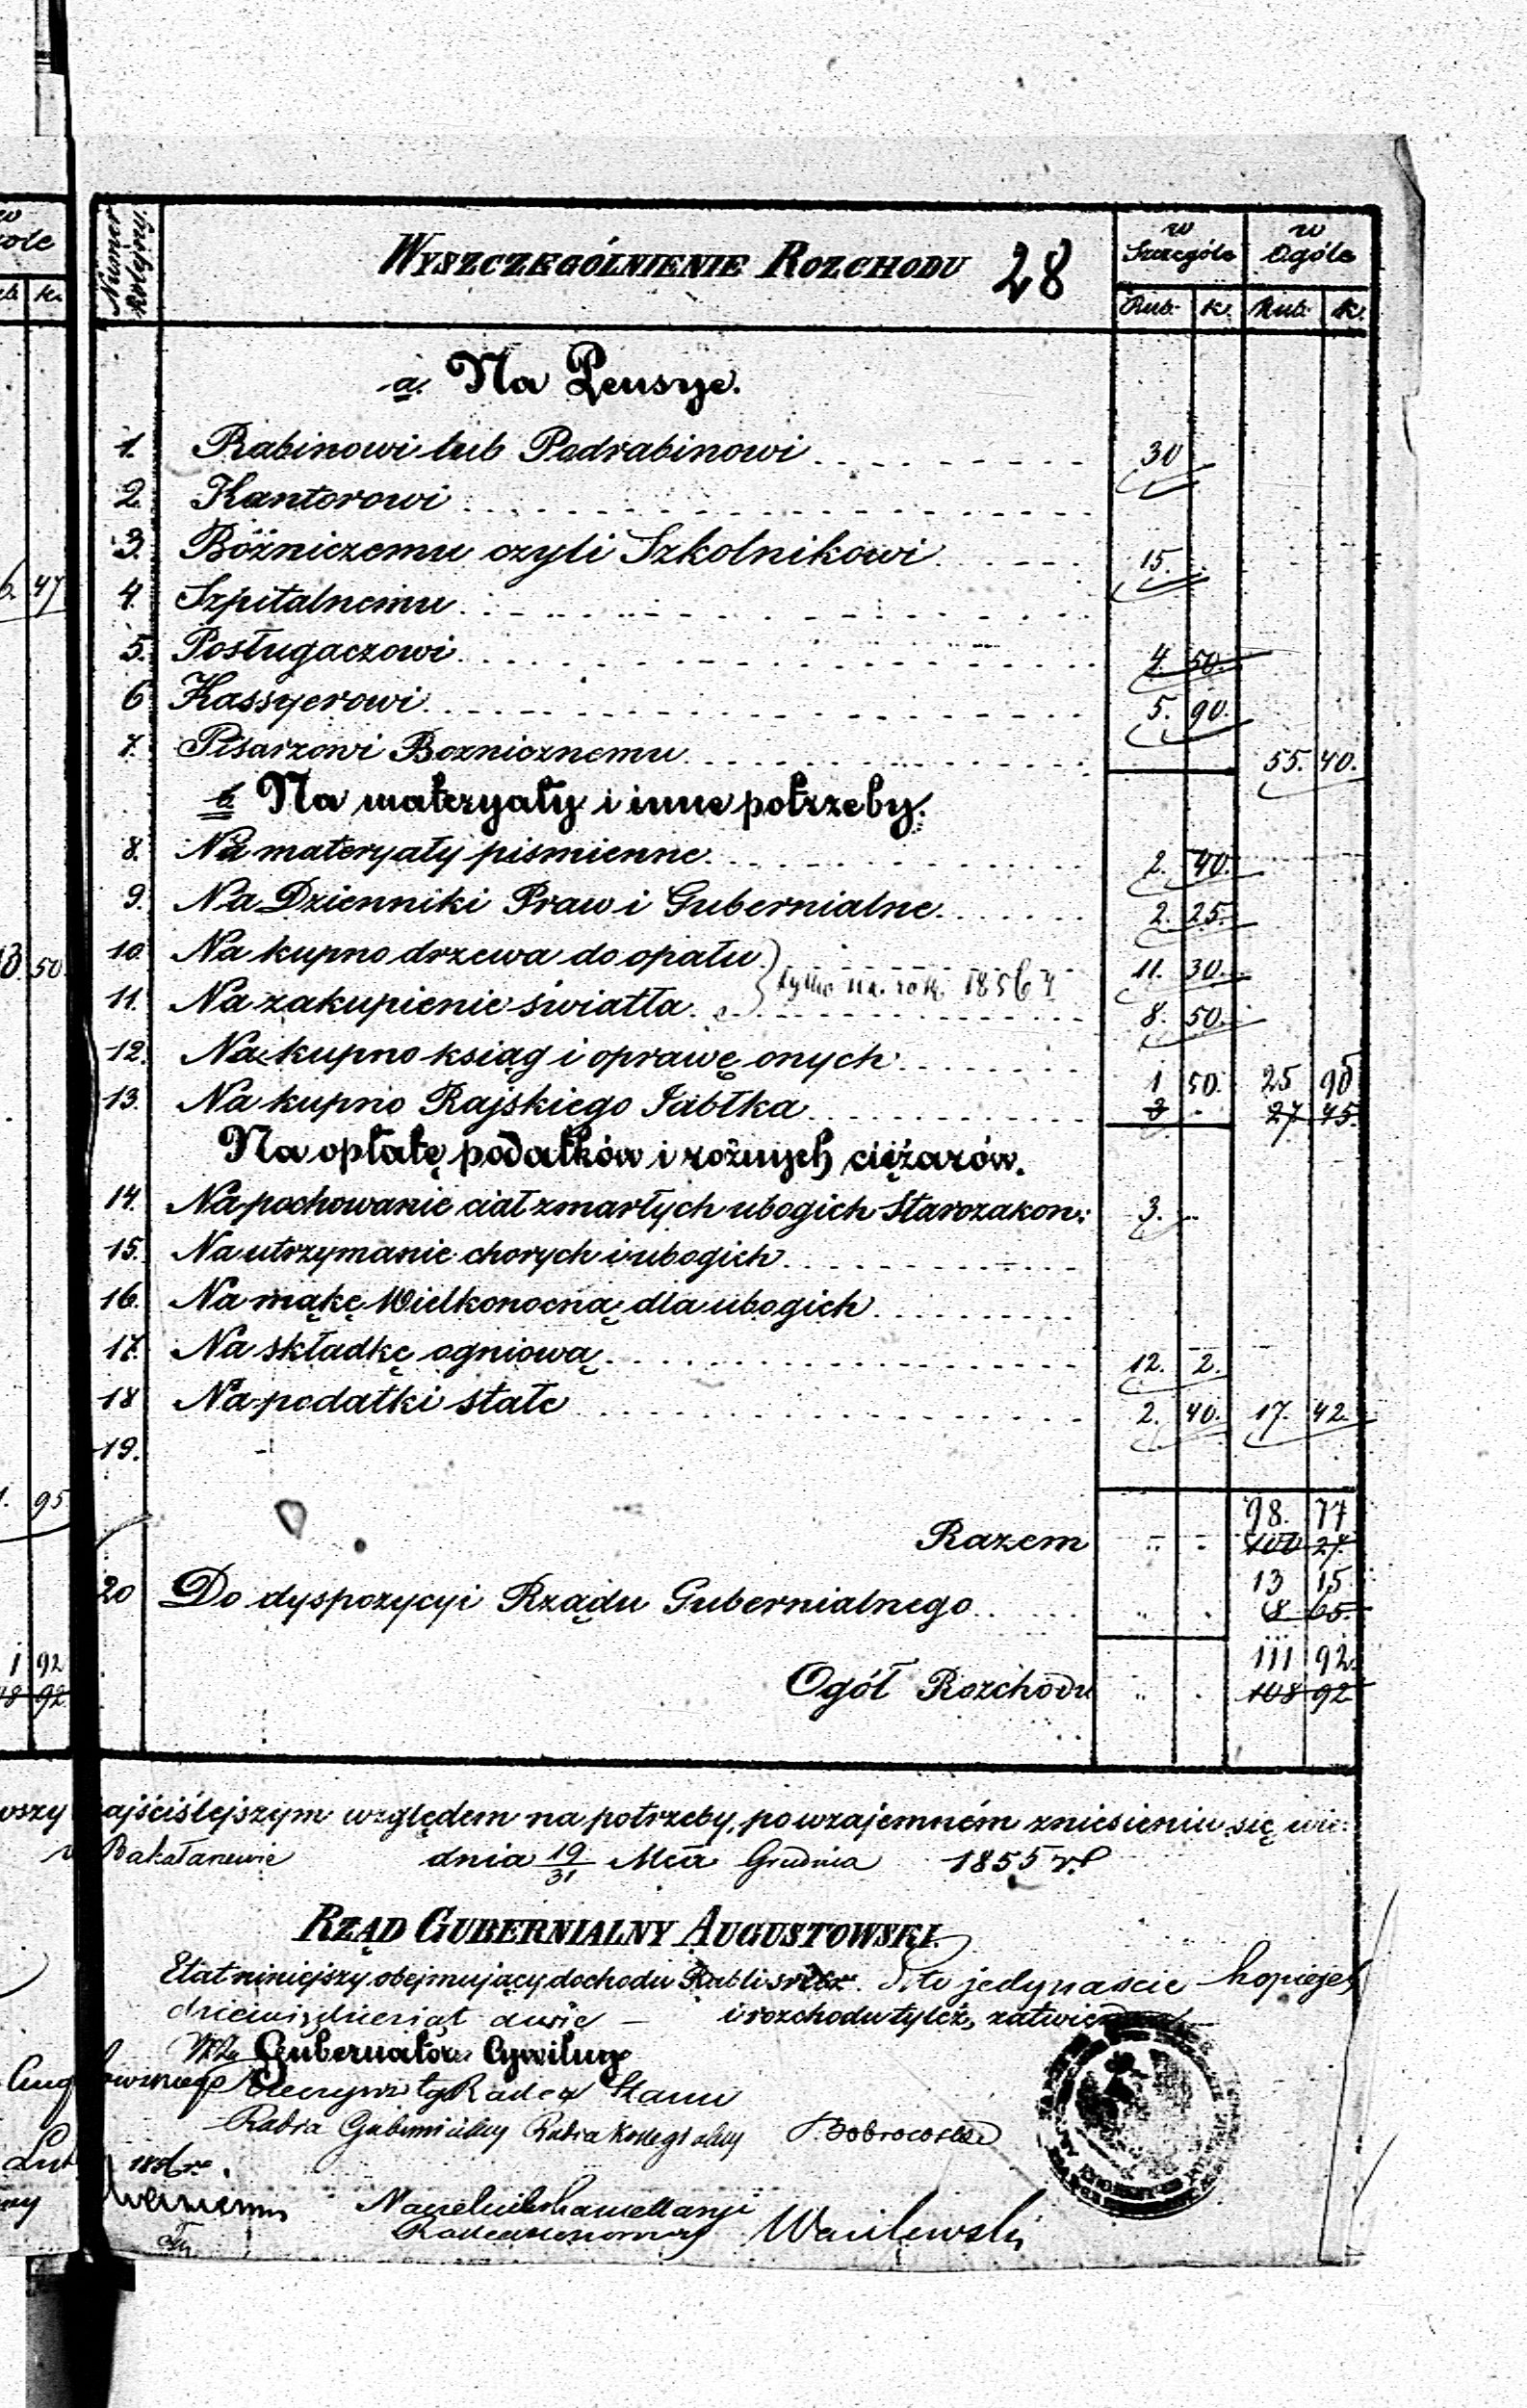 w
k.
Numer
kolejny.
WYSZCZEGÓLNIENIE ROZCHODU 28
w Szczególe
w Ogóle
Rub. k. Rub. k.
a. Na Pensye.
1. Rabinowi lub Podrabinowi 30
2. Kantorowi
3. Bóżniczemu czyli Szkolnikowi 15.
6. 47
4. Szpitalnemu
5. Posługaczowi 4. 50.
6 Kassyerowi 5. 90.
7. Pisarzowi Boznicznemu 55. 40.
b. Na materyały i inne potrzeby.
8. Na materyały pismienne 2. 40.
9. Na Dzienniki Praw i Gubernialne 2. 25.
10. Na kupno drzewa do opału 11. 30.
50
tylko na rok 1856
11. Na zakupienie światła 8. 50.
12. Na kupno ksiąg i oprawę onych 1 50. 25 95
13. Na kupno Rajskiego Jabłka 27 45.
Na opłatę podatków i rożnych ciężarów.
14. Na pochowanie ciał zmarłych ubogich Starozakon: 3.
15. Na utrzymanie chorych i ubogich
16. Na mąkę Wielkonocną dla ubogich
17. Na składkę ogniową 12. 2.
18 Na podatki stałe 2. 40. 17. 42.
19.
95
98. 77
Razem 100 27.
13 15
20 Do dyspozycyi Rządu Gubernialnego 8 65.
1 92 111 92.
92 Ogół Rozchodu 108 92
najściślejszym względem na potrzeby, po wzajemném zniesieniu się wie:
w Bakałarzewie dnia 19/31 Mca Grudnia 1855 r.
RZĄD GUBERNIALNY AUGUSTOWSKI.
Etat niniejszy obejmujący dochodu Rubli srebr. Sto jedynascie kopiejek
dziewięćdziesiąt dwie — i rozchodu tyleż, zatwierdza
Gubernator Cywilny
Rzeczywisty Radca Stanu
Radca Gubernialny Radca Kollegialny Dobrowolski
1856 r.
Naczelnik Kancellaryi
Radca Honorowy Wasilewski